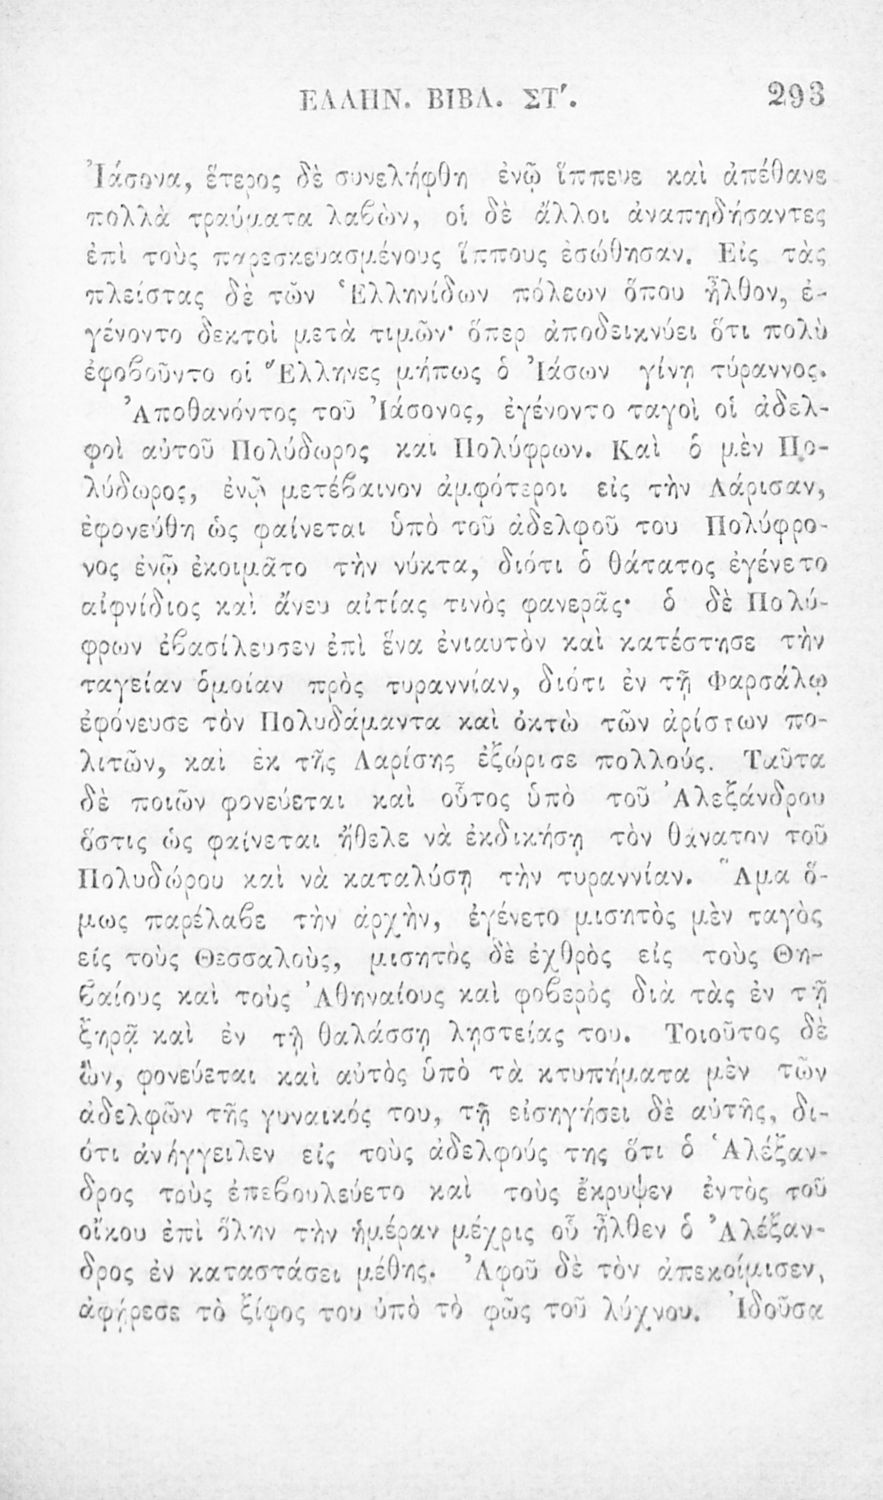 ΕΛΛΗΝ. ΒΙΒΛ. ΣΤ'. 293
Ἰάσονα, ἕτερος δὲ συνελήφθη ἐνῷ ἵππευε καὶ ἀπέθανε
πολλὰ τραύματα λαβὼν, οἱ δὲ ἄλλοι ἀναπηδήσαντες
ἐπὶ τοὺς παρεσκευασμένους ἵππους ἐσώθησαν. Εἰς τὰς
πλείστας δὲ τῶν Ἑλληνίδων πόλεων ὅπου ἦλθον, ἐ-
γένοντο δεκτοὶ μετὰ τιμῶν· ὅπερ ἀποδεικνύει ὅτι πολὺ
ἐφοβοῦντο οἱ Ἕλληνες μήπως ὁ Ἰάσων γίνῃ τύραννος.
Ἀποθανόντος τοῦ Ἰάσονος, ἐγένοντο ταγοὶ οἱ ἀδελ-
φοὶ αὐτοῦ Πολύδωρος καὶ Πολύφρων. Καὶ ὁ μὲν Πο-
λύδωρος, ἐνῷ μετέβαινον ἀμφότεροι εἰς τὴν Λάρισαν,
ἐφονεύθη ὡς φαίνεται ὑπὸ τοῦ ἀδελφοῦ του Πολύφρο-
νος ἐνῷ ἐκοιμᾶτο τὴν νύκτα, διότι ὁ θάτατος ἐγένετο
αἰφνίδιος καὶ ἄνευ αἰτίας τινὸς φανερᾶς· ὁ δὲ Πολύ-
φρων ἐβασίλευσεν ἐπὶ ἕνα ἐνιαυτὸν καὶ κατέστησε τὴν
ταγείαν ὁμοίαν πρὸς τυραννίαν, διότι ἐν τῇ Φαρσάλῳ
ἐφόνευσε τὸν Πολυδάμαντα καὶ ὀκτὼ τῶν ἀρίστων πο-
λιτῶν, καὶ ἐκ τῆς Λαρίσης ἐξώρισε πολλούς. Ταῦτα
δὲ ποιῶν φονεύεται καὶ οὗτος ὑπὸ τοῦ Ἀλεξάνδρου
ὅστις ὡς φαίνεται ἤθελε νὰ ἐκδικήσῃ τὸν θάνατον τοῦ
Πολυδώρου καὶ νὰ καταλύσῃ τὴν τυραννίαν. Ἅμα ὅ-
μως παρέλαβε τὴν ἀρχὴν, ἐγένετο μισητὸς μὲν ταγὸς
εἰς τοὺς Θεσσαλοὺς, μισητὸς δὲ ἐχθρὸς εἰς τοὺς Θη-
βαίους καὶ τοὺς Ἀθηναίους καὶ φοβερὸς διὰ τὰς ἐν τῇ
ξηρᾷ καὶ ἐν τῇ θαλάσσῃ λῃστείας του. Τοιοῦτος δὲ
ὢν, φονεύεται καὶ αὐτὸς ὑπὸ τὰ κτυπήματα μὲν τῶν
ἀδελφῶν τῆς γυναικός του, τῇ εἰσηγήσει δὲ αὐτῆς, δι-
ότι ἀνήγγειλεν εἰς τοὺς ἀδελφούς της ὅτι ὁ Ἀλέξαν-
δρος τοὺς ἐπεβουλεύετο καὶ τοὺς ἔκρυψεν ἐντὸς τοῦ
οἴκου ἐπὶ ὅλην τὴν ἡμέραν μέχρις οὗ ἦλθεν ὁ Ἀλέξαν-
δρος ἐν καταστάσει μέθης. Ἀφοῦ δὲ τὸν ἀπεκοίμισεν,
ἀφῄρεσε τὸ ξίφος του ὑπὸ τὸ φῶς τοῦ λύχνου. Ἰδοῦσα